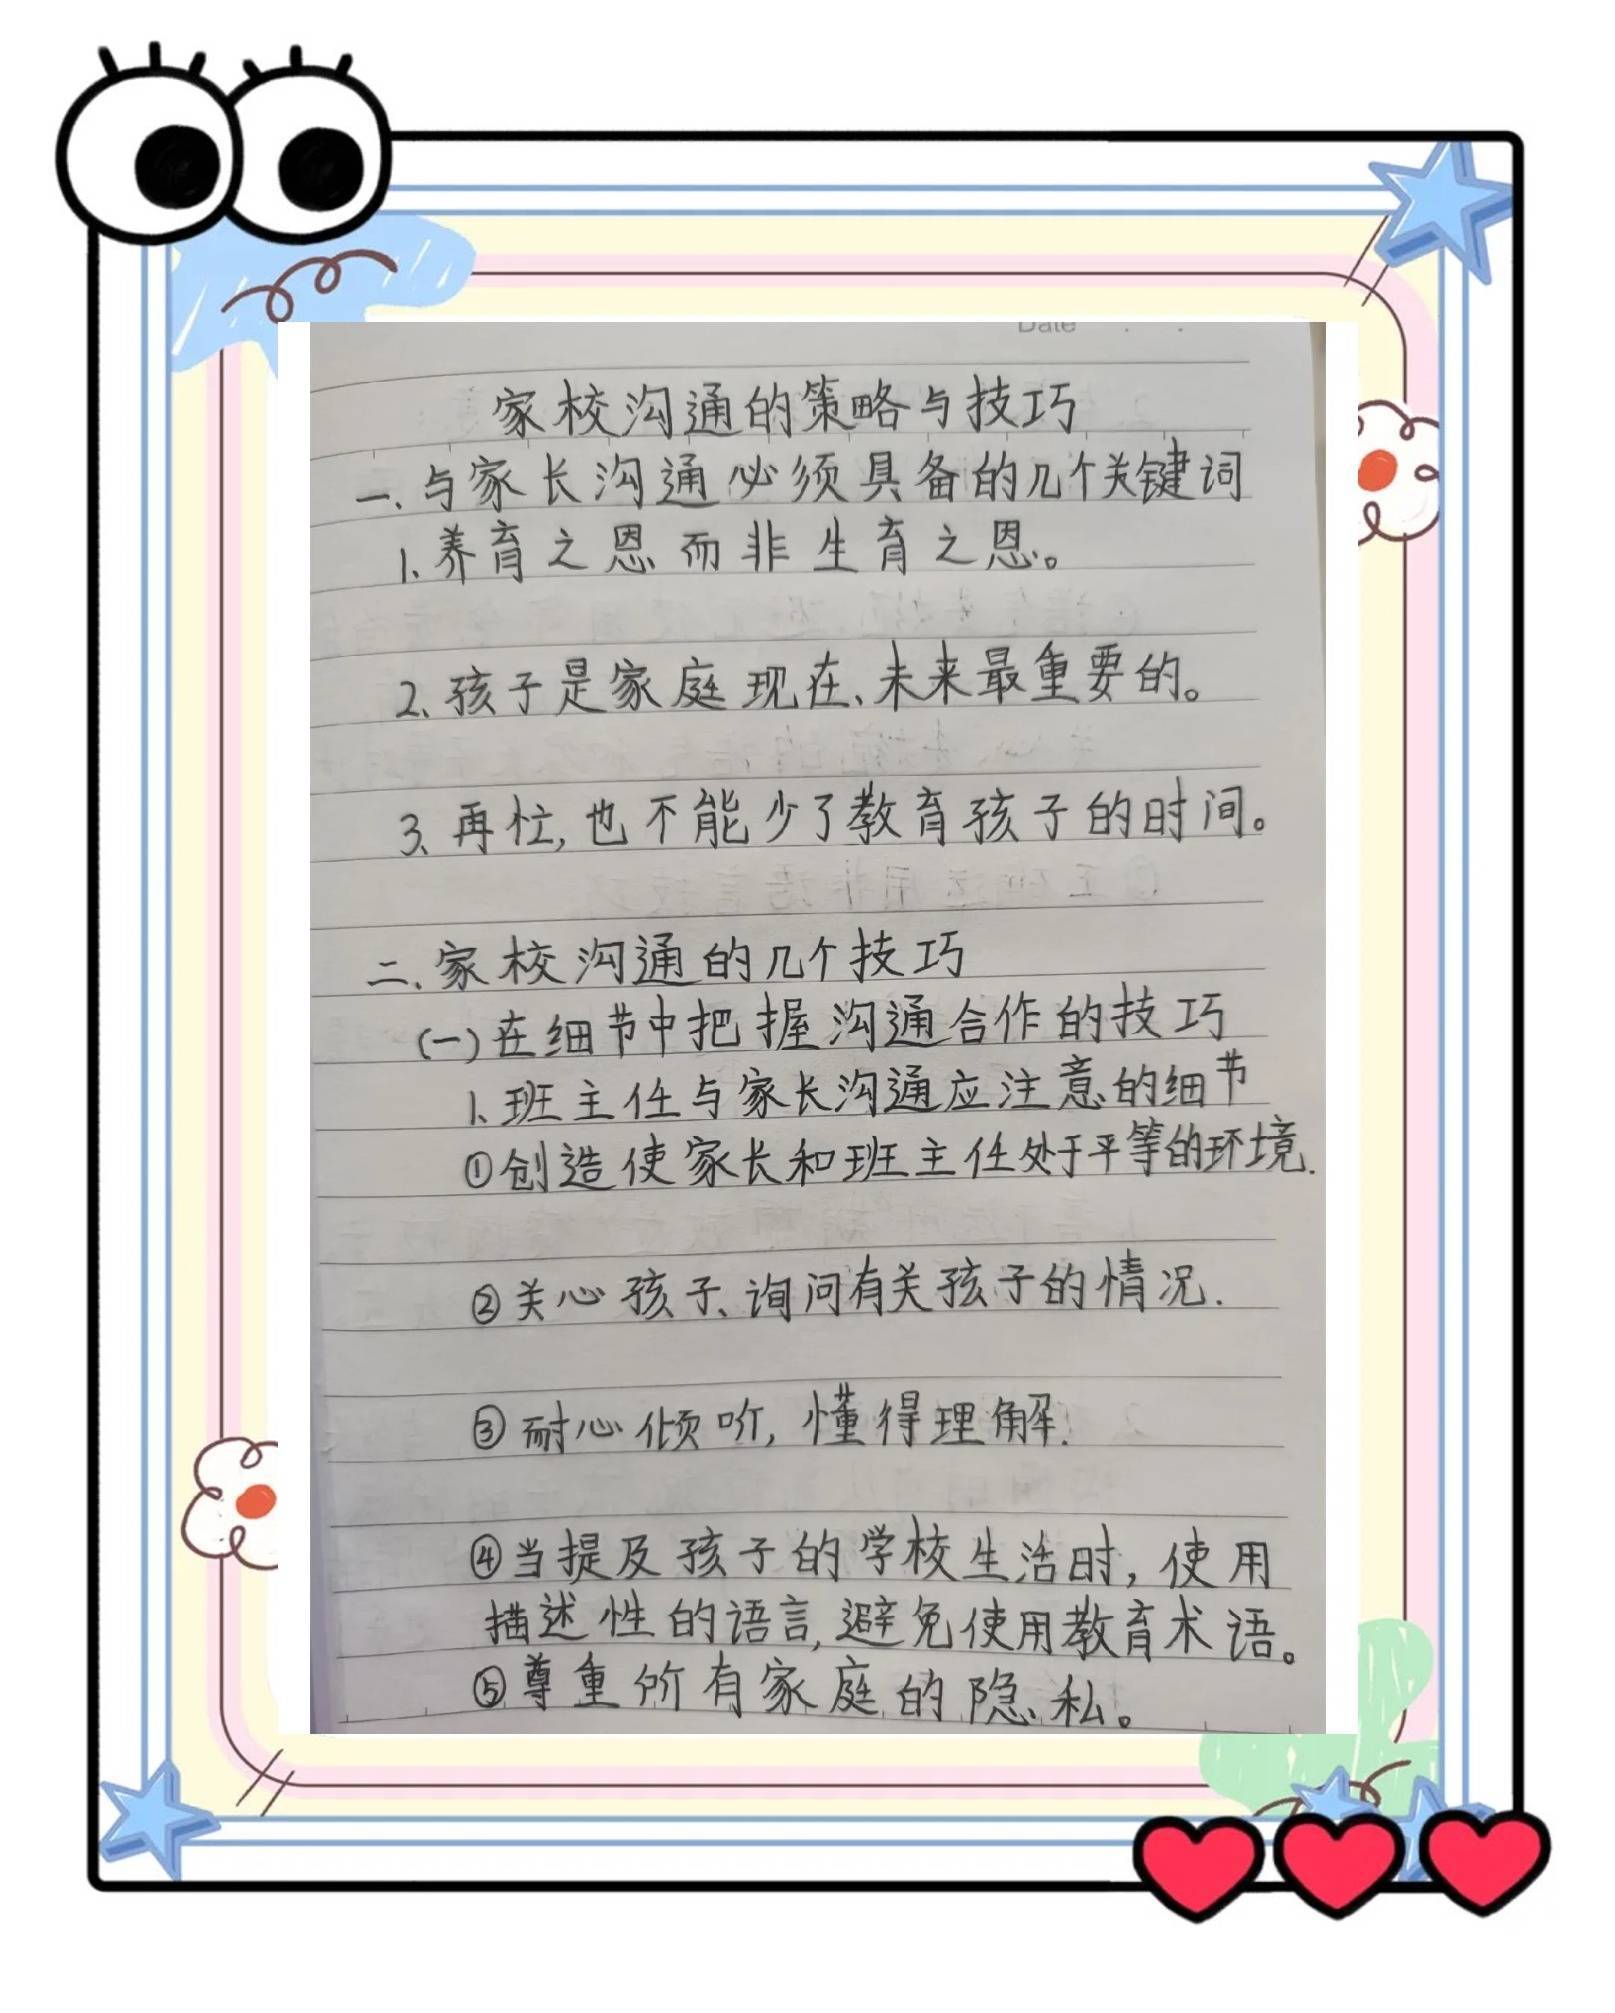 Date
家校沟通的策略与技巧
一、与家长沟通必须具备的几个关键词
1、养育之恩而非生育之恩。
2、孩子是家庭现在、未来最重要的。
3、再忙,也不能少了教育孩子的时间。
二、家校沟通的几个技巧
(一)在细节中把握沟通合作的技巧
1、班主任与家长沟通应注意的细节
①创造使家长和班主任处于平等的环境.
②关心孩子、询问有关孩子的情况.
③耐心倾听,懂得理解.
④当提及孩子的学校生活时,使用
描述性的语言,避免使用教育术语。
⑤尊重所有家庭的隐私。